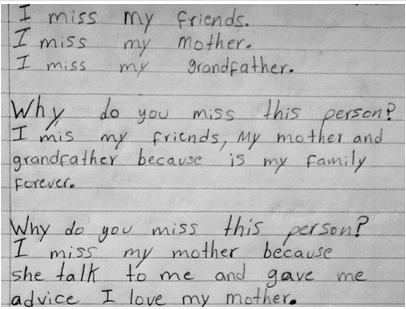 I miss my friends.
I miss my mother.
I miss my grandfather.
Why do you miss this person?
I mis my friends, My mother and
grandfather because is my family
forever.
Why do you miss this person?
I miss my mother because
she talk to me and gave me
advice I love my mother.